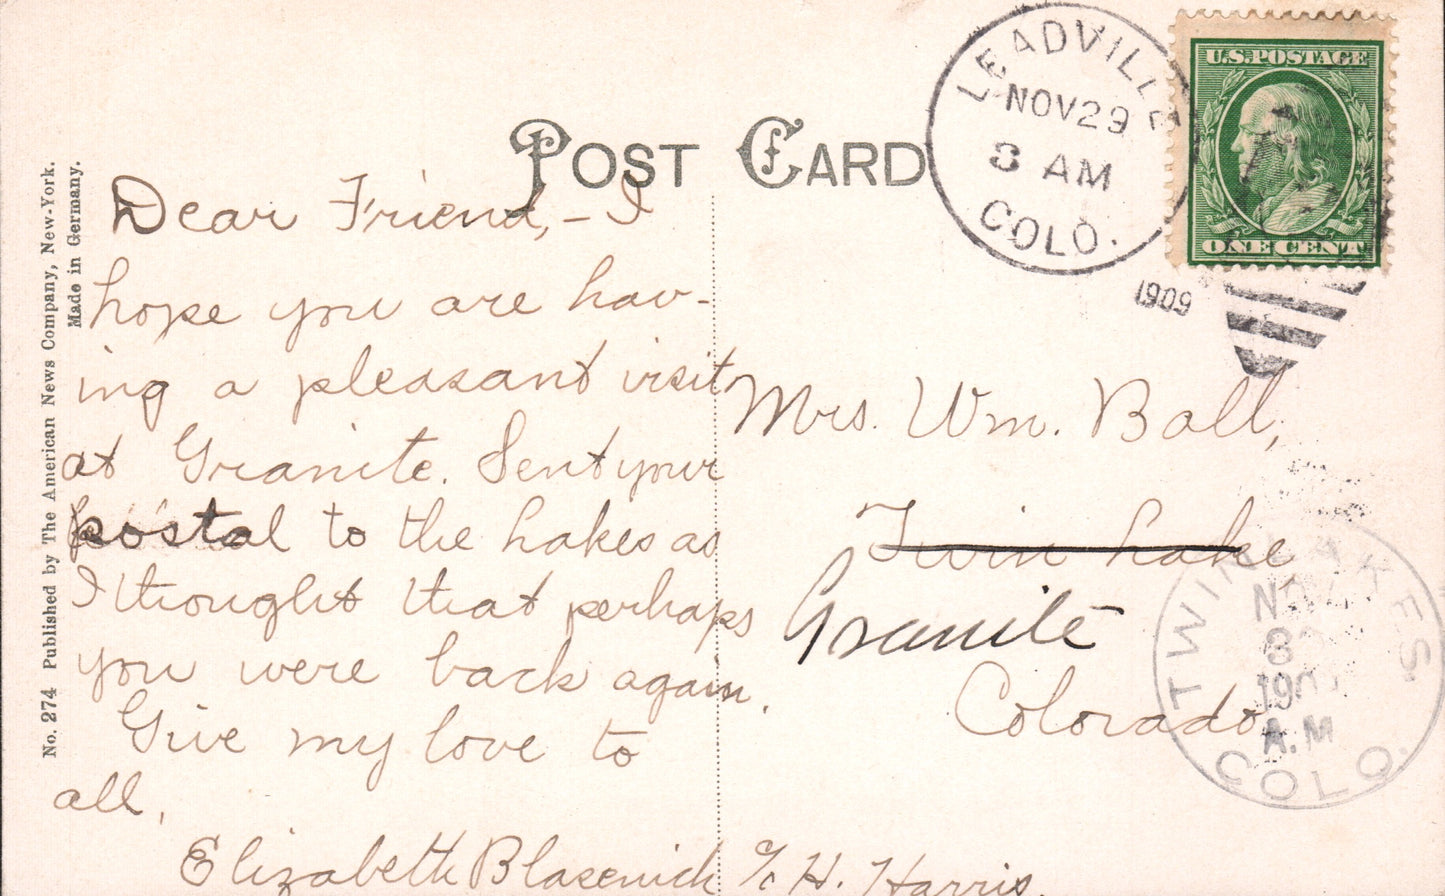 POST CARD
LEADVILLE
NOV 29
8 AM
COLO.
1909
U.S. POSTAGE
ONE CENT
No. 274 Published by The American News Company, New-York.
Made in Germany.
Dear Friend,- I
hope you are hav-
ing a pleasant visit
at Granite. Sent your
postal to the Lakes as
I thought that perhaps
you were back again.
Give my love to
all,
Elizabeth Blasenick
c/o H. Harris.
Mrs. Wm. Ball,
Twin Lake
Granite
Colorado
TWIN LAKES
NOV
A.M
COLO.